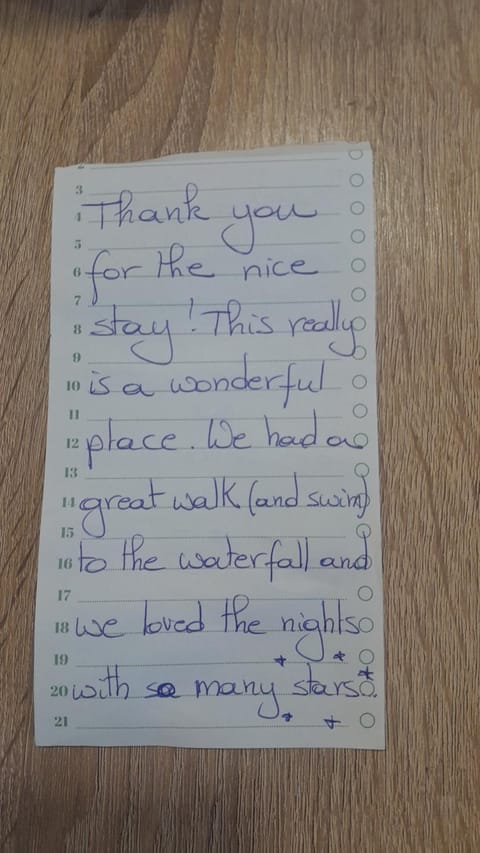 3
4 Thank you
5
6 for the nice
7
8 stay! This really
9
10 is a wonderful
11
12 place. We had a
13
14 great walk (and swim)
15
16 to the waterfall and
17
18 we loved the nights
19
20 with so many stars.
21